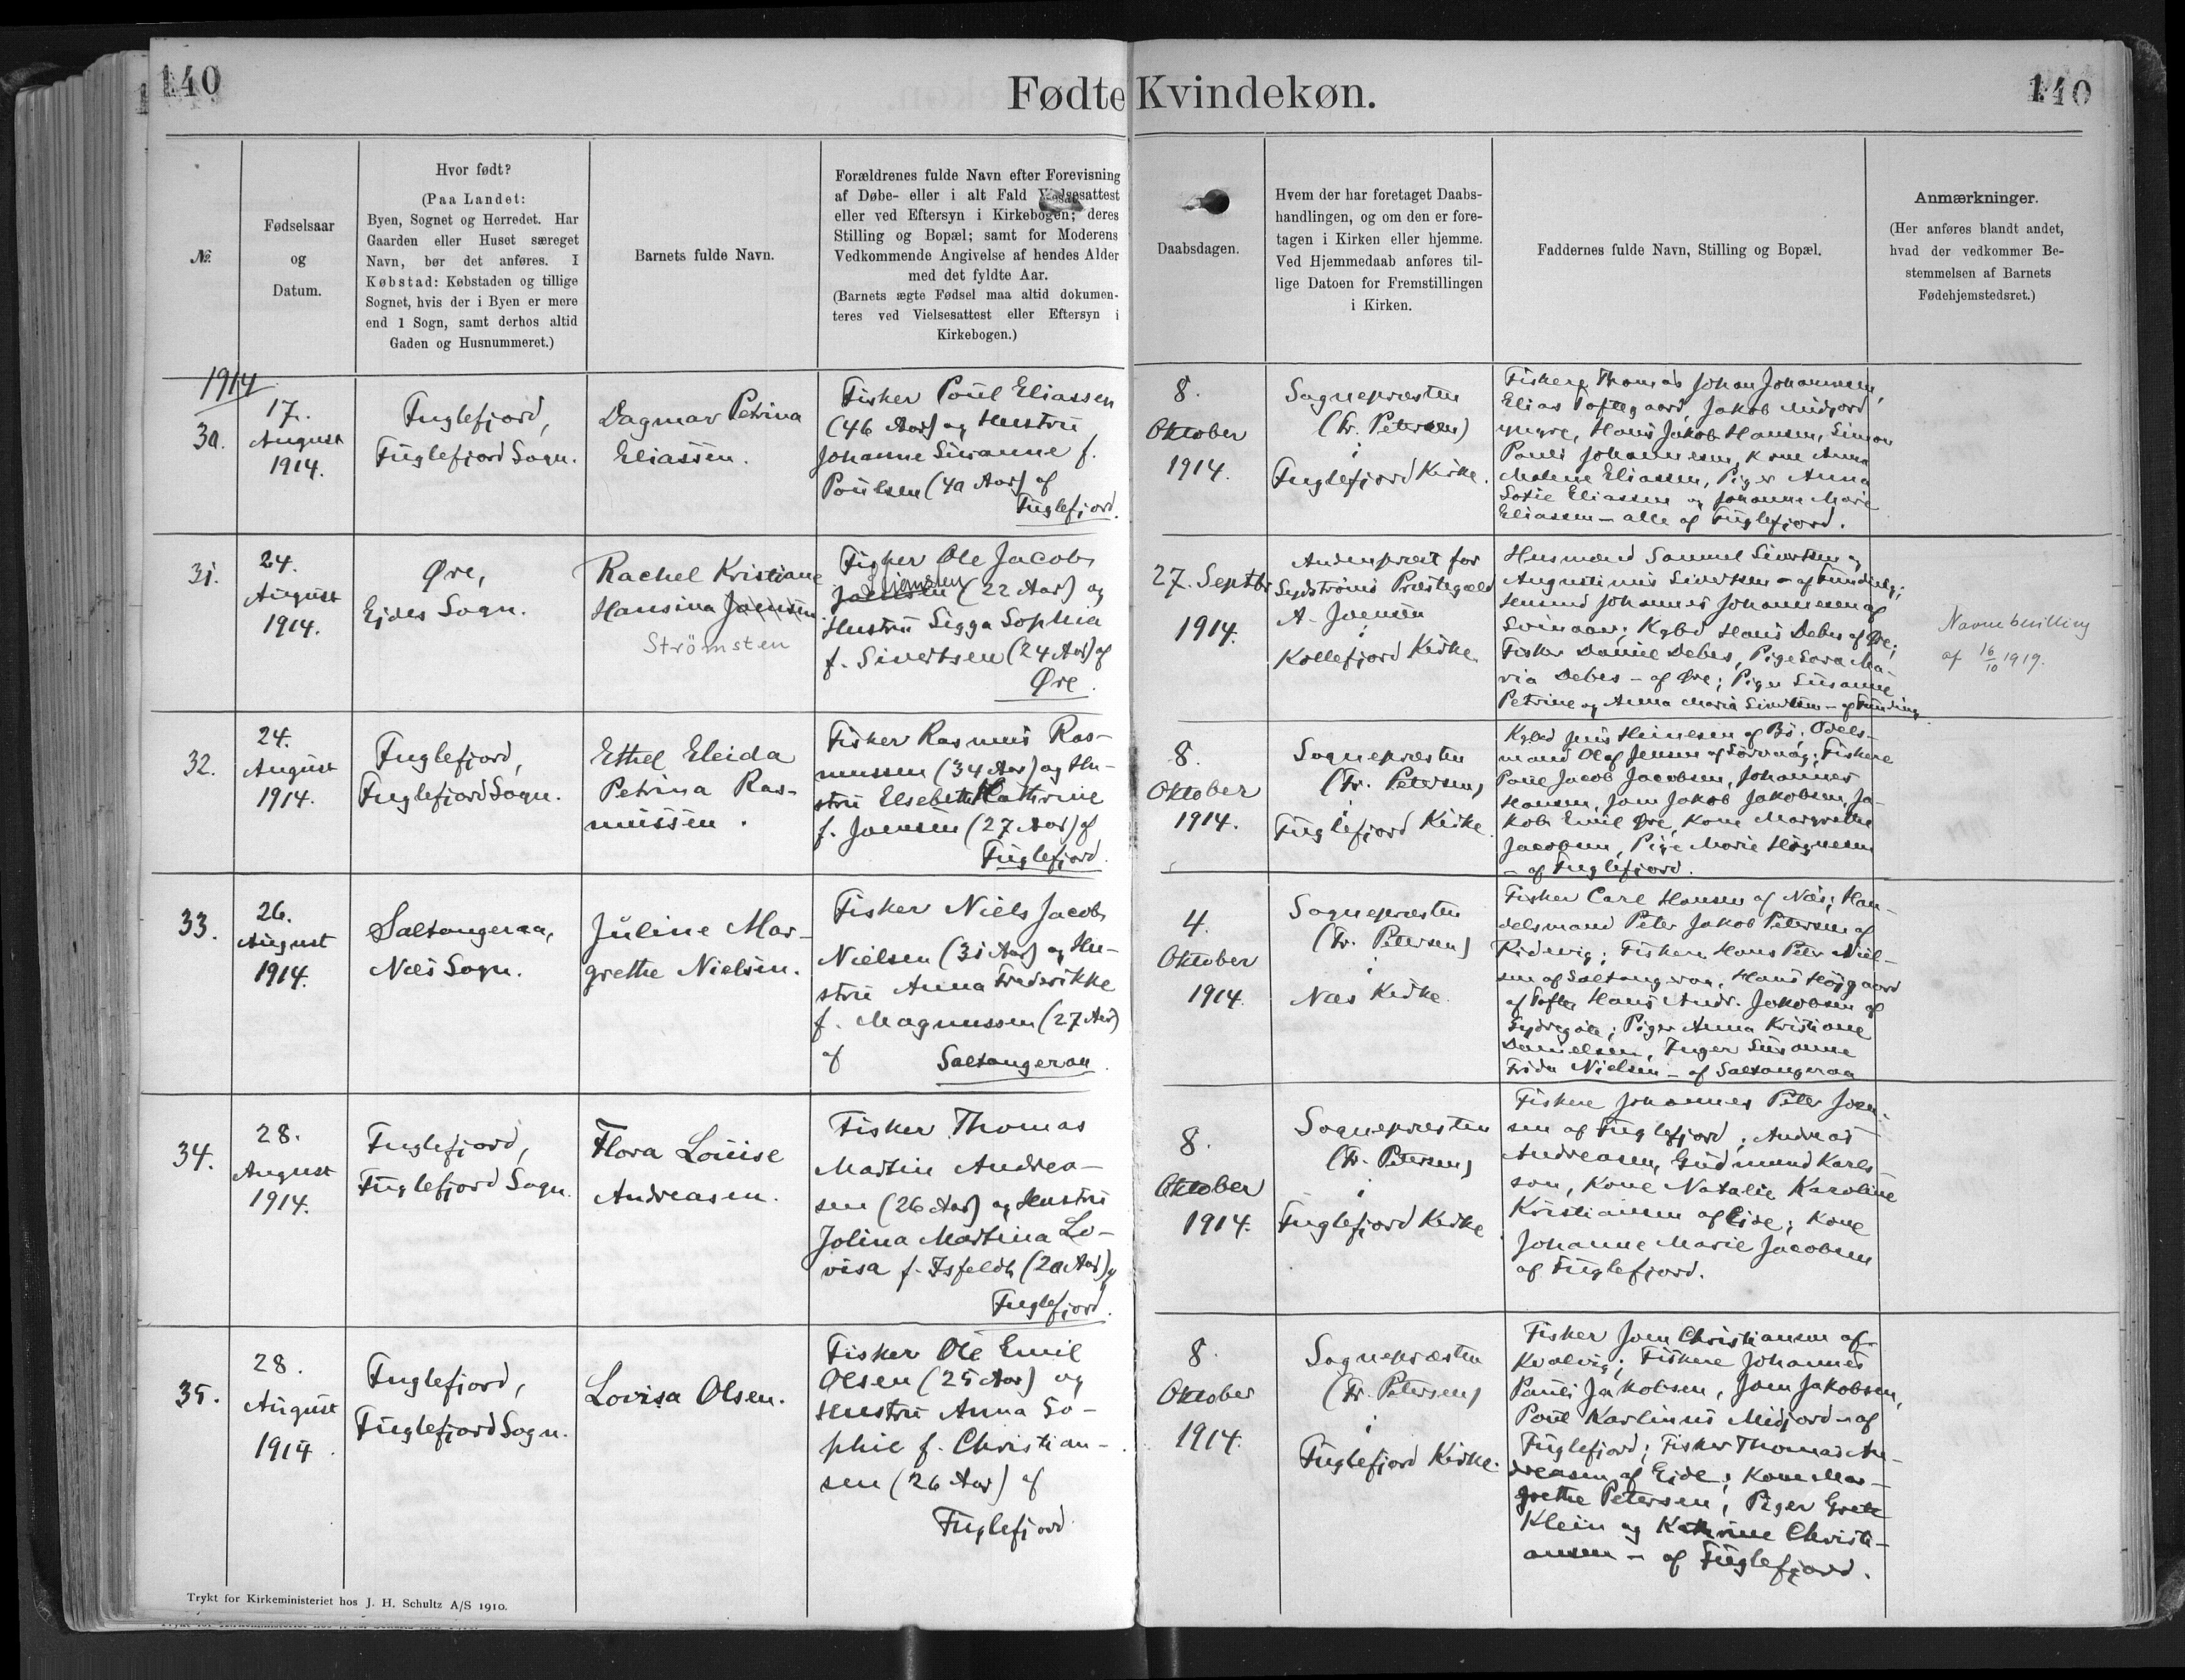 140
Fødte Kvindekøn.
140
№
Fødselsaar
og
Datum.
Hvor født?
(Paa Landet:
Byen, Sognet og Herredet. Har
Gaarden eller Huset særeget
Navn, bør det anføres. I
Købstad: Købstaden og tillige
Sognet, hvis der i Byen er mere
end 1 Sogn, samt derhos altid
Gaden og Husnummeret.)
Barnets fulde Navn.
Forældrenes fulde Navn efter Forevisning
af Døbe- eller i alt Fald Vielsesattest
eller ved Eftersyn i Kirkebogen; deres
Stilling og Bopæl; samt for Moderens
Vedkommende Angivelse af hendes Alder
med det fyldte Aar.
(Barnets ægte Fødsel maa altid dokumen-
teres ved Vielsesattest eller Eftersyn i
Kirkebogen.)
Daabsdagen.
Hvem der har foretaget Daabs-
handlingen, og om den er fore-
tagen i Kirken eller hjemme.
Ved Hjemmedaab anføres til-
lige Datoen for Fremstillingen
i Kirken.
Faddernes fulde Navn, Stilling og Bopæl.
Anmærkninger.
(Her anføres blandt andet,
hvad der vedkommer Be-
stemmelsen af Barnets
Fødehjemstedsret.)
1914
30.
17.
August
1914.
Fuglefjord,
Fuglefjord Sogn.
Dagmar Petrina
Eliassen.
Fisker Poul Eliassen
(46 Aar) og Hustru
Johanne Susanne f.
Poulsen (40 Aar) af
Fuglefjord.
8.
Oktober
1914.
Sognepræsten
(Fr. Petersen)
i
Fuglefjord Kirke.
Fiskere Thomas Johan Johannesen,
Elias Toftegaard, Jakob Midjord
yngre, Hans Jakob Hansen, Simon
Pauli Johannesen, Kone Anna
Malene Eliassen, Piger Anna
Sofie Eliassen og Johanne Marie
Eliassen – alle af Fuglefjord.
31.
24.
August
1914.
Øre,
Ejdes Sogn.
Rachel Kristiane
Hansina Joensen.
Strömsten
Fisker Ole Jacob
Joensen (22 Aar) og
Hustru Sigga Sophia
f. Sivertsen (24 Aar) af
Øre.
27. Septbr
1914.
Andenpræst for
Sydstrømø Præstegæld
A. Joensen
i
Kollefjord Kirke.
Husmænd Samuel Sivertsen og
Augustinus Sivertsen – af Funding;
Husmd Johannes Johannesen af
Svinaar; Kgbd Hans Debes af Øre;
Fisker Daniel Debes, Pige Sara Ma-
ria Debes – af Øre; Piger Susanne
Petrine og Anna Maria Sivertsen – af Funding.
Navnebevilling
af 16/10 1919.
32.
24.
August
1914.
Fuglefjord,
Fuglefjord Sogn.
Ethel Eleida
Petrina Ras-
mussen.
Fisker Rasmus Ras-
mussen (34 Aar) og Hu-
stru Elsebeth Kathrine
f. Joensen (27 Aar) af
Fuglefjord.
8.
Oktober
1914.
Sognepræsten
(Fr. Petersen)
i
Fuglefjord Kirke.
Kgbd Jens Heinesen af Bø. Odels-
mand Olaf Jensen af Sørvaag; Fiskere
Poul Jacob Jacobsen, Johannes
Hansen, Joen Jakob Jakobsen, Ja-
kob Emil Øre, Kone Margrethe
Jacobsen, Pige Marie Høgnesen
– af Fuglefjord.
33.
26.
August
1914.
Saltangeraa,
Næs Sogn.
Juline Mar-
grethe Nielsen.
Fisker Niels Jacob
Nielsen (31 Aar) og Hu-
stru Anna Frederikke
f. Magnussen (27 Aar)
af Saltangeraa.
4.
Oktober
1914.
Sognepræsten
(Fr. Petersen)
i
Næs Kirke.
Fisker Carl Hansen af Næs; Han-
delsmand Peter Jakob Petersen af
Ridevig; Fiskere Hans Peter Niel-
sen af Saltangeraa, Hans Højgaard
af Tofte, Hans Andr. Jakobsen af
Sydregøte; Piger Anna Kristiane
Danielsen, Inger Susanne
Frida Nielsen – af Saltangeraa
34.
28.
August
1914.
Fuglefjord,
Fuglefjord Sogn.
Flora Louise
Andreasen.
Fisker Thomas
Martin Andrea-
sen (26 Aar) og Hustru
Jolina Martina Lo-
visa f. Isfeldt (20 Aar) af
Fuglefjord.
8.
Oktober
1914.
Sognepræsten
(Fr. Petersen)
i
Fuglefjord Kirke.
Fiskere Johannes Peter Joen-
sen af Fuglefjord; Andreas
Andreasen, Gudmund Karls-
son, Kone Natalie Karoline
Kristiansen af Ejde; Kone
Johanne Marie Jacobsen
af Fuglefjord.
35.
28.
August
1914.
Fuglefjord,
Fuglefjord Sogn.
Lovisa Olsen.
Fisker Ole Emil
Olsen (25 Aar) og
Hustru Anna So-
phie f. Christian-
sen (26 Aar) af
Fuglefjord
8.
Oktober
1914.
Sognepræsten
(Fr. Petersen)
i
Fuglefjord Kirke.
Fisker Joen Christiansen af
Kvalvig; Fiskere Johannes
Pauli Jakobsen, Joen Jakobsen,
Poul Karlinus Midjord – af
Fuglefjord; Fisker Thomas An-
dreasen af Ejde; Kone Mar-
grethe Petersen, Piger Grete
Klein og Kathrine Christi-
ansen – af Fuglefjord.
Trykt for Kirkeministeriet hos J. H. Schultz A/S 1910.